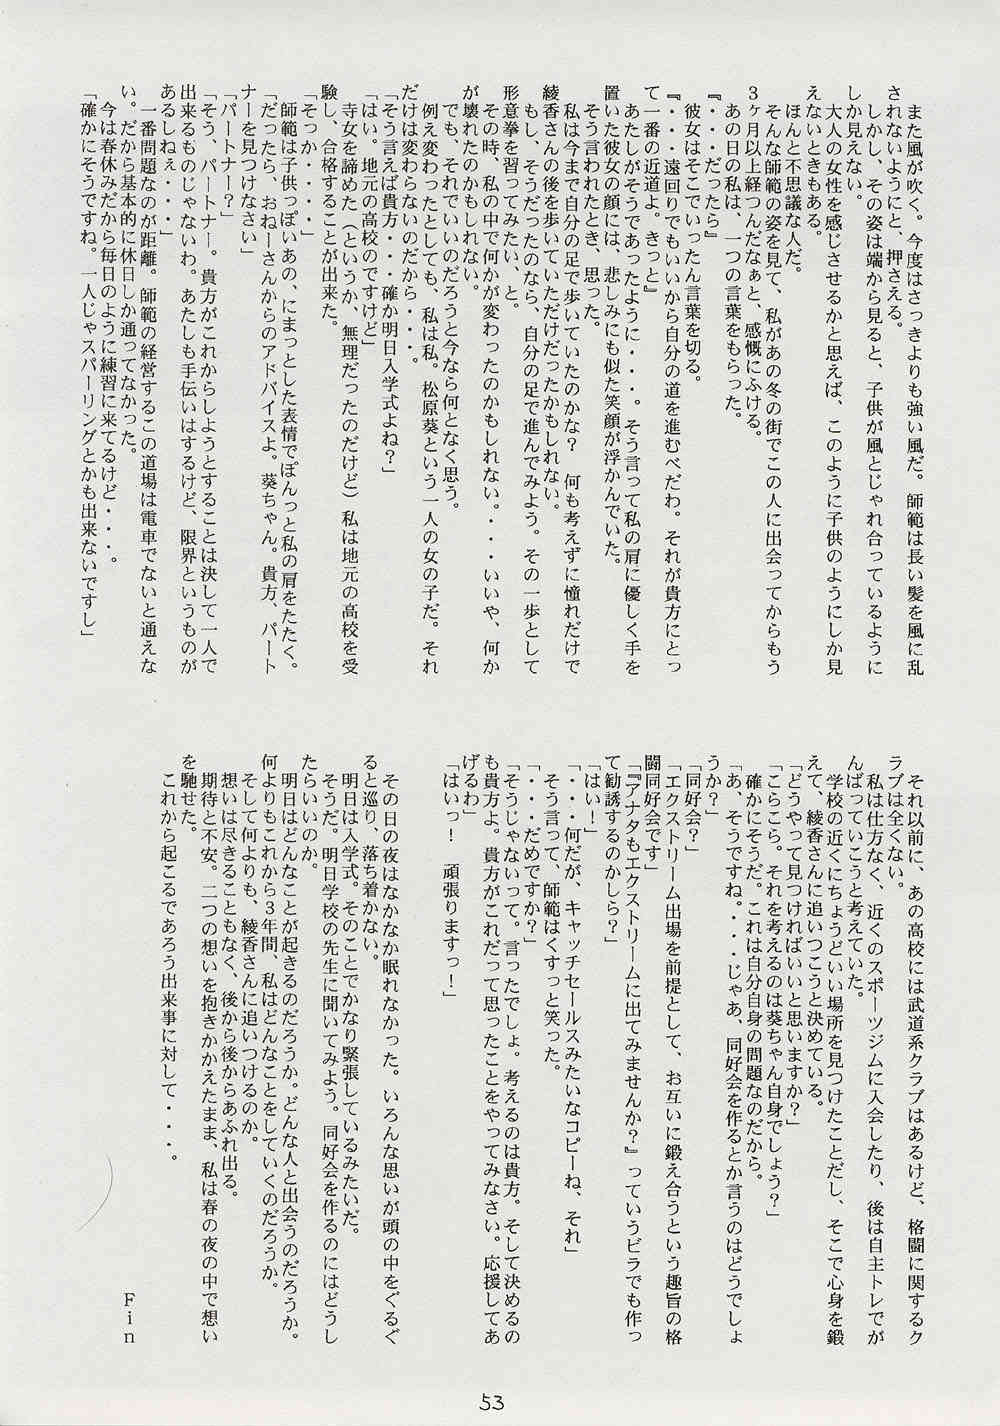 また風が吹く。今度はさっきよりも強い風だ。師範は長い髪を風に乱
されないようにと、押さえる。
　しかし、その姿は端から見ると、子供が風とじゃれ合っているように
しか見えない。
　大人の女性を感じさせるかと思えば、このように子供のようにしか見
えないときもある。
　ほんと不思議な人だ。
　そんな師範の姿を見て、私があの冬の街でこの人に出会ってからもう
３ヶ月以上経つんだなぁと、感慨にふける。
　あの日の私は、一つの言葉をもらった。
『・・・だったら』
　彼女はそこでいったん言葉を切る。
『・・・遠回りでもいいから自分の道を進むべだわ。それが貴方にとっ
て一番の近道よ。きっと』
　あたしがそうであったように・・・。そう言って私の肩に優しく手を
置いた彼女の顔には、悲しみにも似た笑顔が浮かんでいた。
　そう言われたとき、思った。
　私は今まで自分の足で歩いていたのかな？　何も考えずに憧れだけで
綾香さんの後を歩いていただけだったかもしれない。
　もし、そうだったのなら、自分の足で進んでみよう。その一歩として
形意拳を習ってみたい、と。
　その時、私の中で何かが変わったのかもしれない。・・・いいや、何か
が壊れたのかもしれない。
　でも、それでいいのだろうと今なら何となく思う。
　例え変わったとしても、私は私。松原葵という一人の女の子だ。それ
だけは変わらないのだから・・・。
「そう言えば貴方・・・確か明日入学式よね？」
「はい。地元の高校のですけど」
　寺女を諦めた（というか、無理だったのだけど）私は地元の高校を受
験し、合格することが出来た。
「そっか・・・」
　師範は子供っぽいあの、にまっとした表情でぽんっと私の肩をたたく。
「だったら、おねーさんからのアドバイスよ。葵ちゃん。貴方、パート
ナーを見つけなさい」
「パートナー？」
「そう、パートナー。貴方がこれからしようとすることは決して一人で
出来るものじゃないわ。あたしも手伝いはするけど、限界というものが
あるしねぇ・・・」
　一番問題なのが距離。師範の経営するこの道場は電車でないと通えな
い。だから基本的に休日しか通ってなかった。
　今は春休みだから毎日のように練習に来てるけど・・・。
「確かにそうですね。一人じゃスパーリングとかも出来ないですし」
　それ以前に、あの高校には武道系クラブはあるけど、格闘に関するク
ラブは全くない。
　私は仕方なく、近くのスポーツジムに入会したり、後は自主トレでが
んばっていこうと考えていた。
　学校の近くにちょうどいい場所を見つけたことだし、そこで心身を鍛
えて、綾香さんに追いつこうと決めている。
「どうやって見つければいいと思いますか？」
「こらこら。それを考えるのは葵ちゃん自身でしょう？」
　確かにそうだ。これは自分自身の問題なのだから。
「あ、そうですね。・・・じゃあ、同好会を作るとか言うのはどうでしょ
うか？」
「同好会？」
「エクストリーム出場を前提として、お互いに鍛え合うという趣旨の格
闘同好会です」
「『アナタもエクストリームに出てみませんか？』っていうビラでも作っ
て勧誘するのかしら？」
「はい！」
「・・・何だが、キャッチセールスみたいなコピーね、それ」
　そう言って、師範はくすっと笑った。
「・・・だめですか？」
「そうじゃないって。言ったでしょ。考えるのは貴方。そして決めるの
も貴方よ。貴方がこれだって思ったことをやってみなさい。応援してあ
げるわ」
「はいっ！　頑張りますっ！」
　その日の夜はなかなか眠れなかった。いろんな思いが頭の中をぐるぐ
ると巡り、落ち着かない。
　明日は入学式。そのことでかなり緊張しているみたいだ。
　そうだ。明日学校の先生に聞いてみよう。同好会を作るのにはどうし
たらいいのか。
　明日はどんなことが起きるのだろうか。どんな人と出会うのだろうか。
何よりもこれから３年間、私はどんなことをしていくのだろうか。
　そして何よりも、綾香さんに追いつけるのか。
　想いは尽きることもなく、後から後からあふれ出る。
　期待と不安。二つの想いを抱きかかえたまま、私は春の夜の中で想い
を馳せた。
　これから起こるであろう出来事に対して・・・。
Ｆｉｎ
53